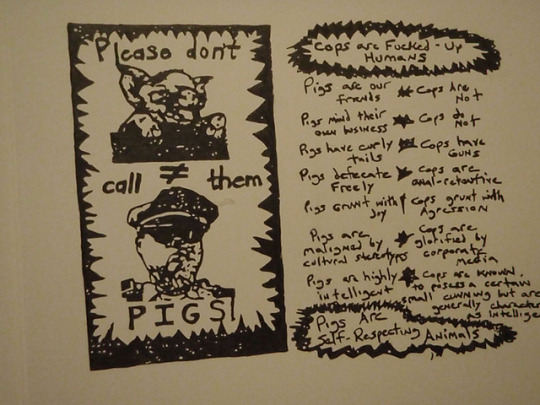 Please don't
call ≠ them
PIGS!
Cops are Fucked-Up
Humans
Pigs are our
friends
Cops Are
Not
Pigs mind their
own business
Cops do
Not
Pigs have curly
tails
Cops have
Guns
Pigs defecate
Freely
Cops are
anal-retentive
Pigs Grunt with
Joy
Cops grunt with
Agression
Pigs are
maligned by
cultural sterotyps
Cops are
glorified by
corporate
media
Pigs are highly
intelligent
Cops are known
to posess a certain
small cunning but are
generally
as
Pigs Are
Self-Respecting Animals